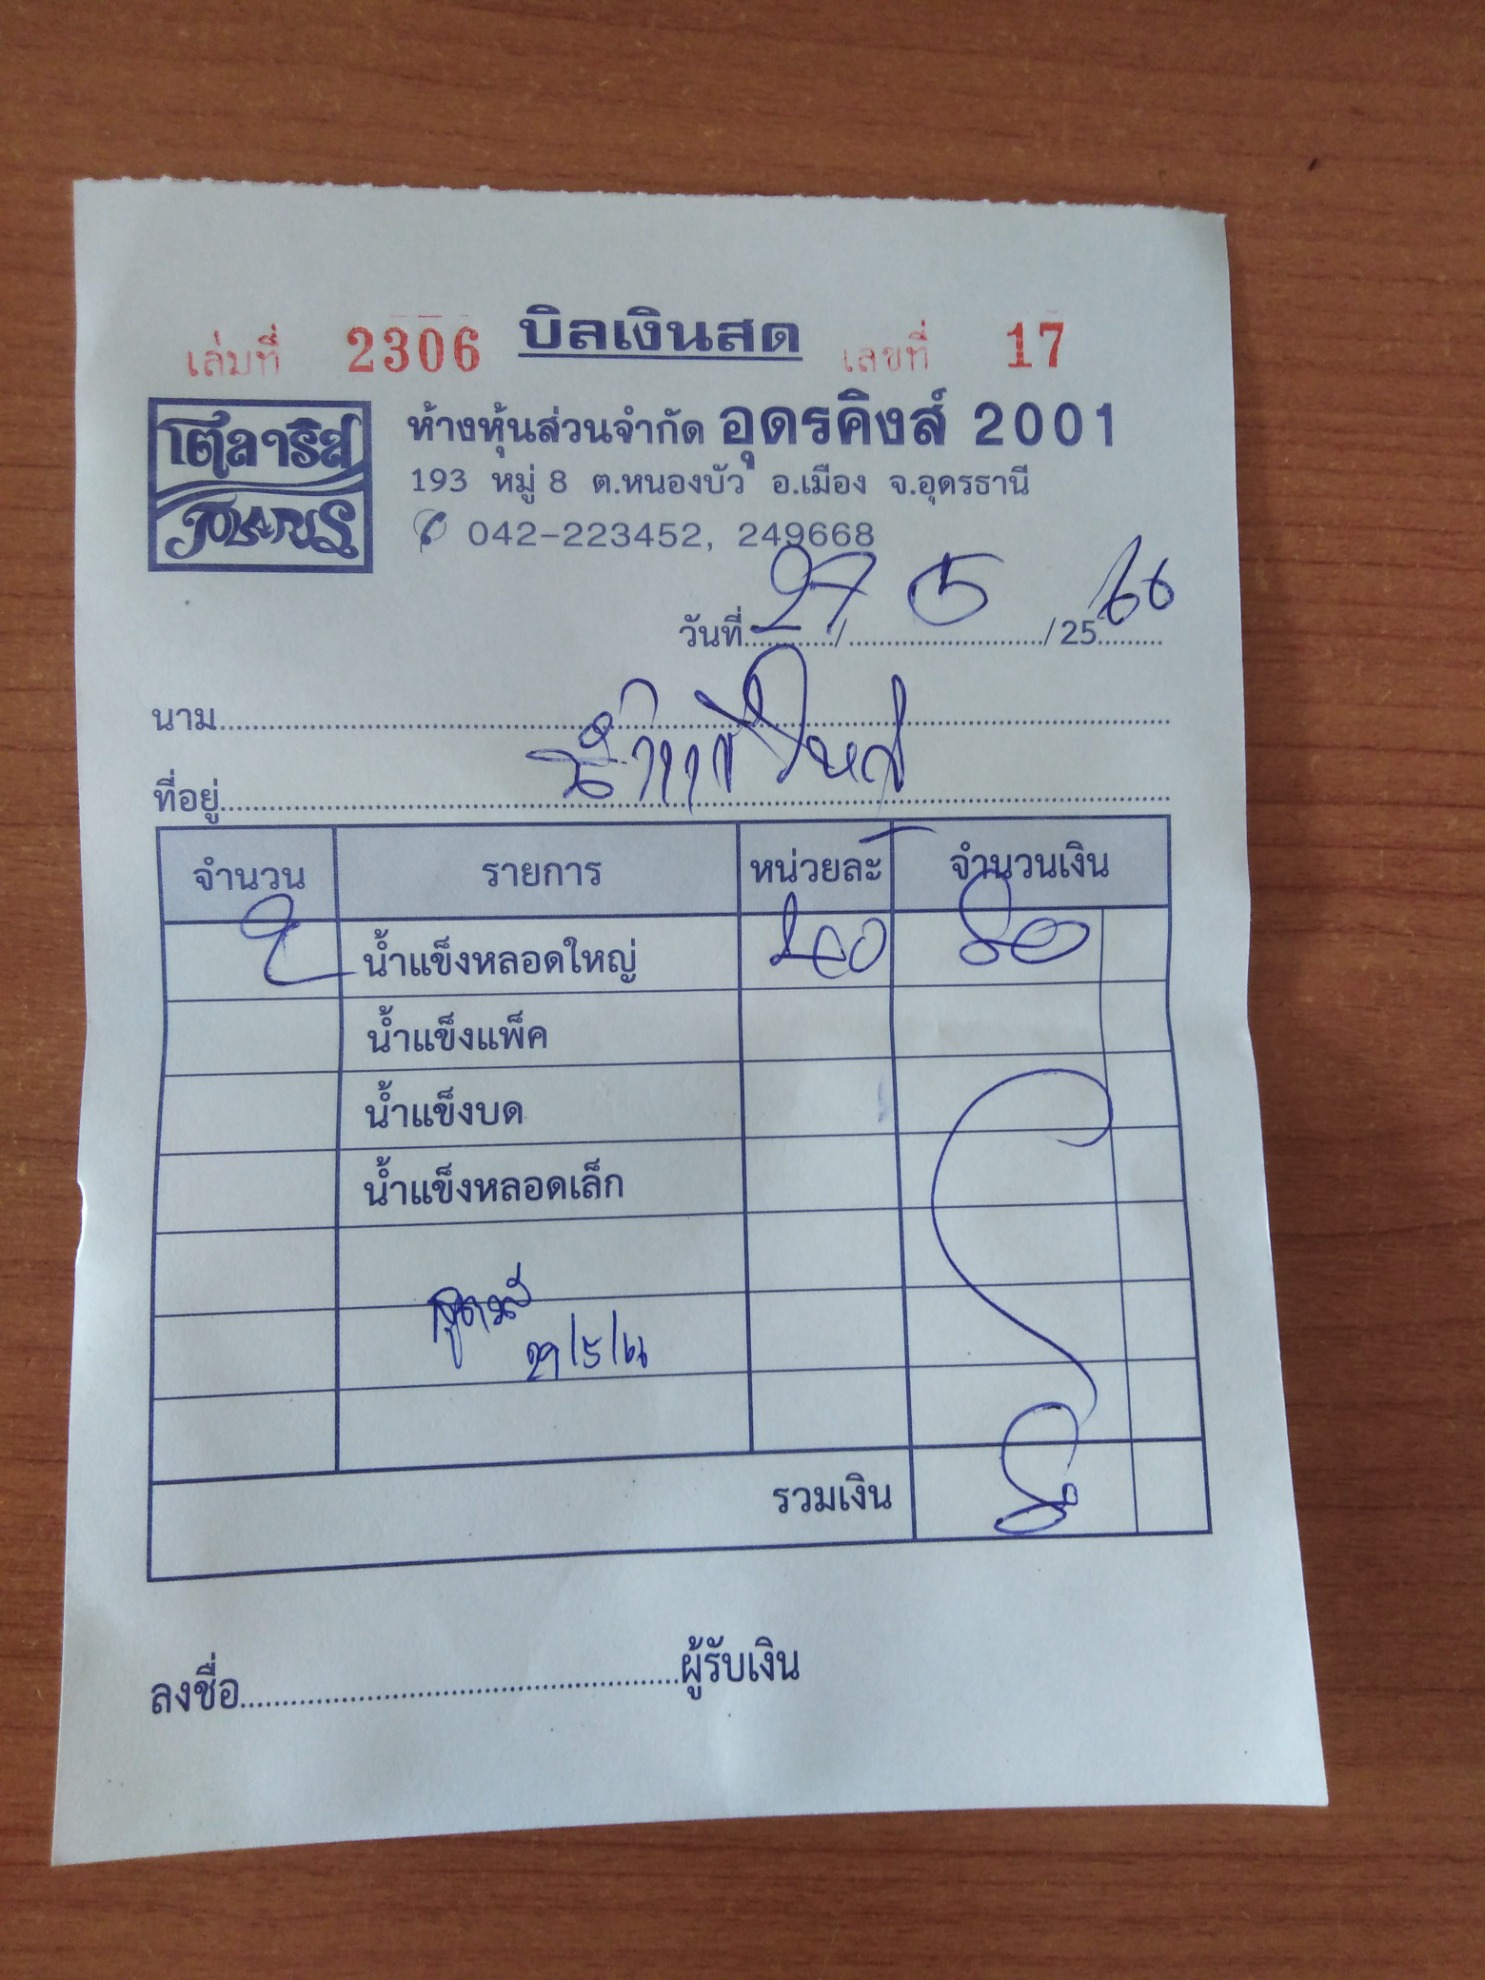 เล่มที่ 2306 บิลเงินสด เลขที่ 17
โตลาริส
POLARIS
ห้างหุ้นส่วนจำกัด อุดรคิงส์ 2001
193 หมู่ 8 ต.หนองบัว อ.เมือง จ.อุดรธานี
042-223452, 249668
วันที่ 27 / 5 / 25 66
นาม
ที่อยู่
จำนวน รายการ หน่วยละ จำนวนเงิน
2 น้ำแข็งหลอดใหญ่ 40 80
น้ำแข็งแพ็ค
น้ำแข็งบด
น้ำแข็งหลอดเล็ก
รวมเงิน 80
ลงชื่อ ผู้รับเงิน